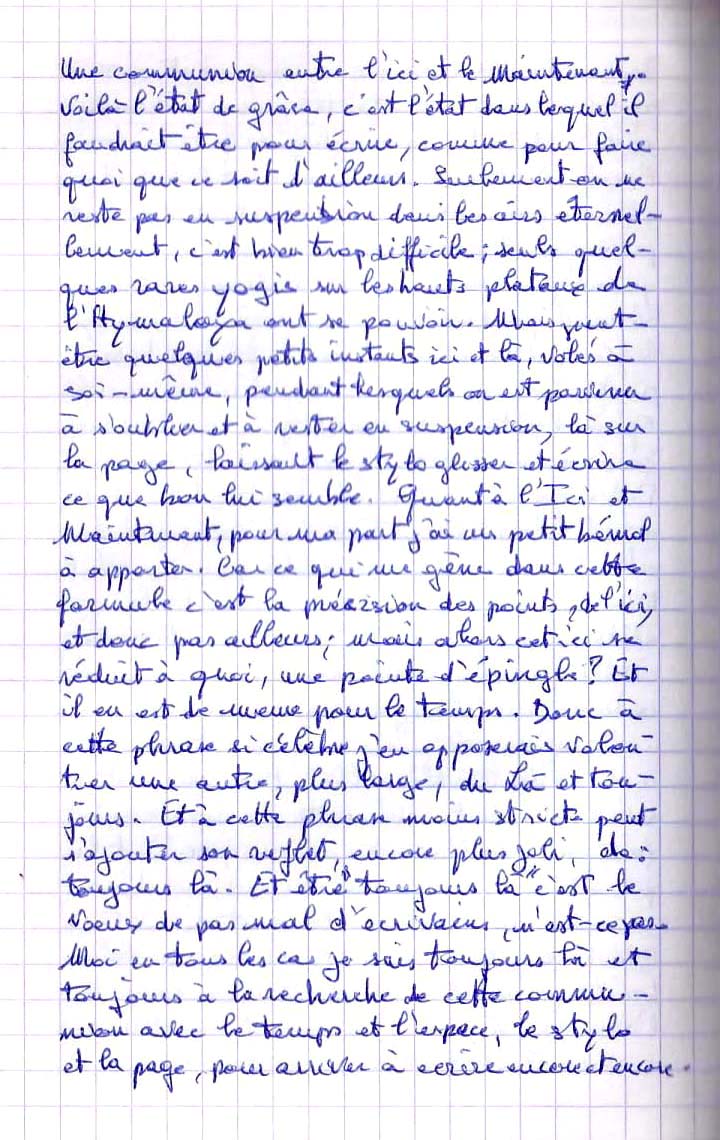 Une communion entre l'ici et le maintenant,
voilà l'état de grâce, c'est l'état dans lequel il
faudrait être pour écrire, comme pour faire
quoi que ce soit d'ailleurs. Seulement on ne
reste pas en suspension dans les airs éternel-
lement, c'est bien trop difficile ; seuls quel-
ques rares yogis sur les hauts plateaux de
l'Hymalaya ont se pouvoir. Mais peut-
être quelques petits instants ici et là, volés à
soi-même, pendant lesquels on est parvenu
à s'oublier et à rester en suspension, là sur
la page, laissant le stylo glisser et écrire
ce que bon lui semble. Quant à l'Ici et
Maintenant, pour ma part j'ai un petit bémol
à apporter. Car ce qui me gêne dans cette
formule c'est la précision des points, de l'ici,
et donc pas ailleurs ; mais alors cet ici se
réduit à quoi, une pointe d'épingle ? Et
il en est de meme pour le temps. Donc à
cette phrase si célèbre j'en opposerais volon-
tier une autre, plus large, du Là et tou-
jours. Et à cette phrase moins stricte peut
s'ajouter son reflet, encore plus joli, de :
toujours là. Et être "toujours là" c'est le
voeux de pas mal d'écrivains, n'est-ce pas.
Moi en tous les cas je suis toujours là et
toujours à la recherche de cette commu-
nion avec le temps et l'espace, le stylo
et la page, pour arriver à ecrire encore et encore.